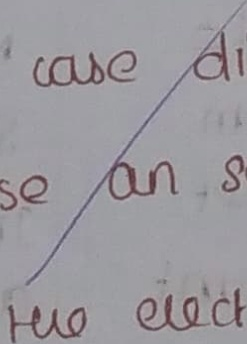 case di
se an s
the elect